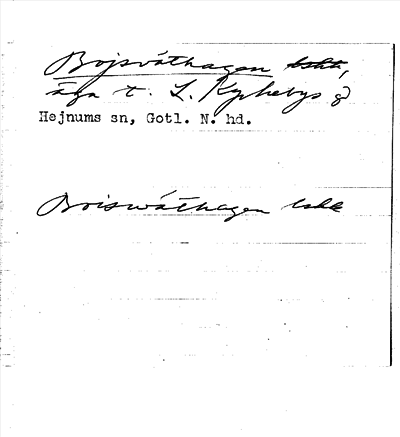 Bojsväthagen bskt,
äga t. L. Kyrkebys gd
Hejnums sn, Gotl. N. hd.
Boiswäthagen